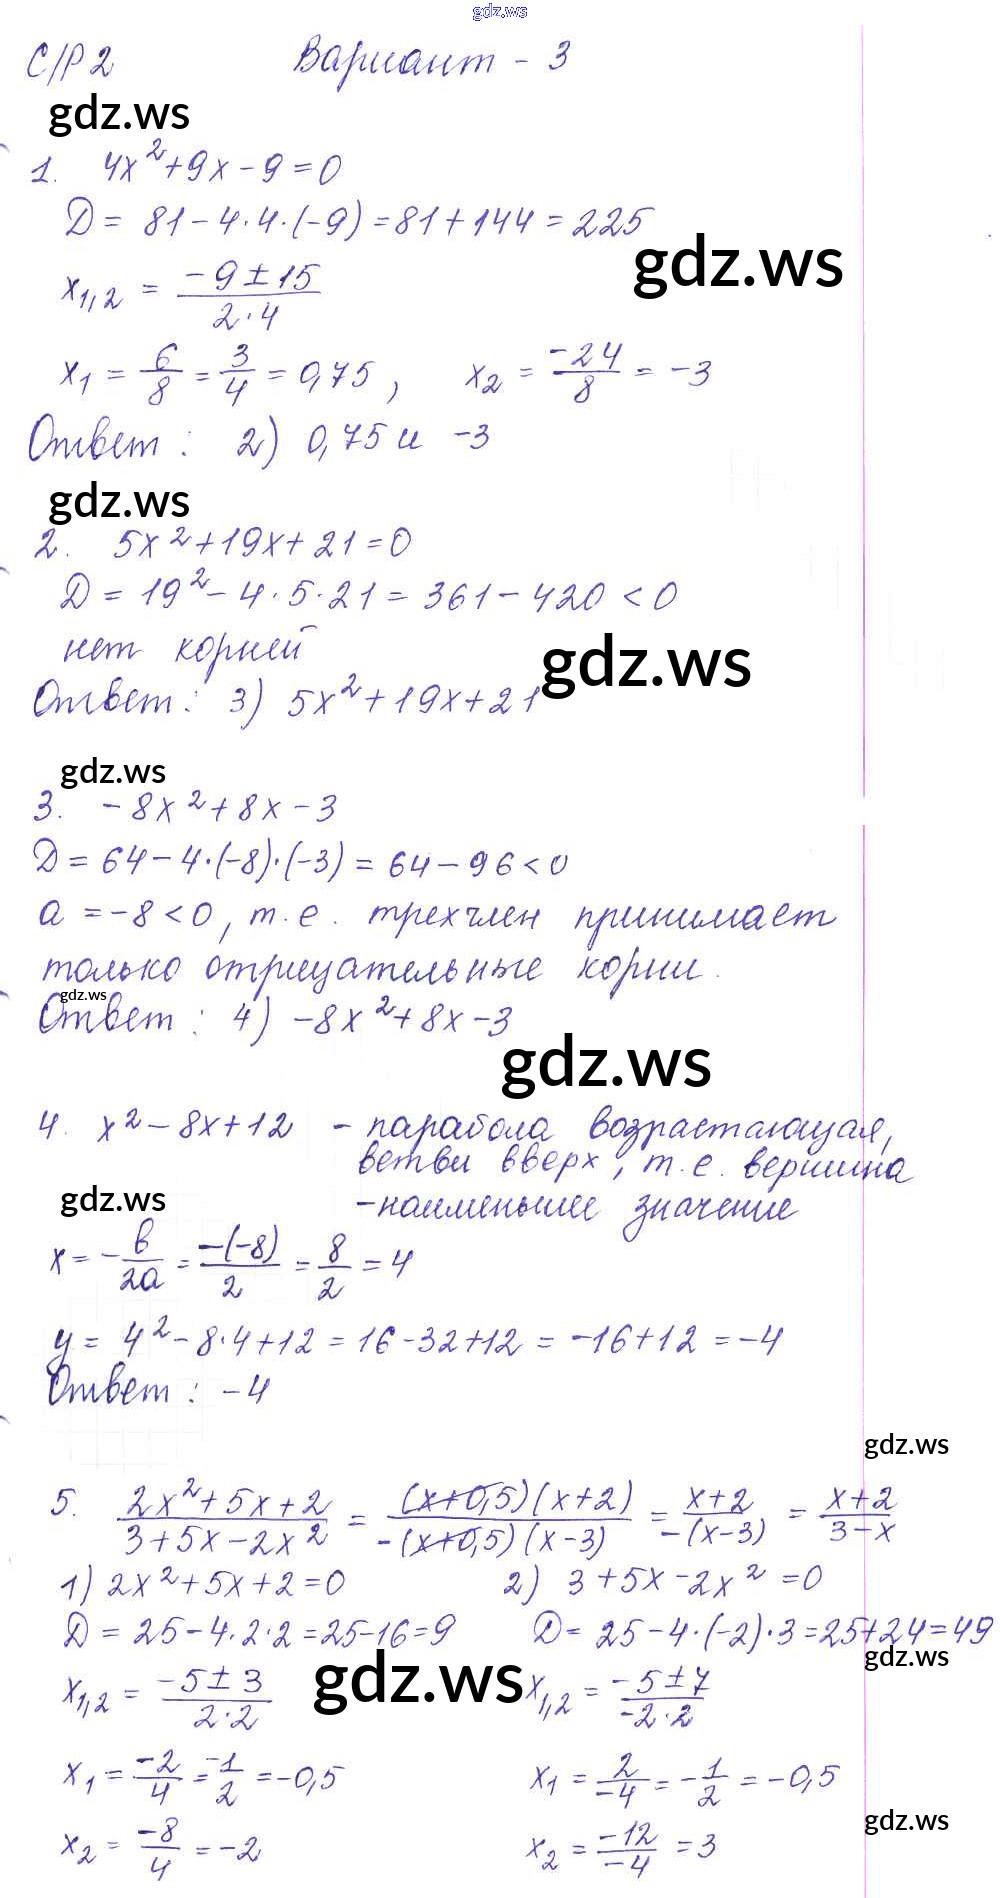 gdz.ws
С/Р 2 Вариант - 3
gdz.ws
1. 4x²+9x-9=0
D = 81-4·4·(-9)=81+144=225
gdz.ws
x₁,₂ = (-9±15)/(2·4)
x₁ = 6/8 = 3/4 = 0,75, x₂ = -24/8 = -3
Ответ: 2) 0,75 и -3
gdz.ws
2. 5x²+19x+21=0
D = 19²-4·5·21=361-420<0
нет корней
gdz.ws
Ответ: 3) 5x²+19x+21
gdz.ws
3. -8x²+8x-3
D=64-4·(-8)·(-3)=64-96<0
a=-8<0, т.е. трехчлен принимает
только отрицательные корни.
gdz.ws
Ответ: 4) -8x²+8x-3
gdz.ws
4. x²-8x+12 - парабола возрастающая,
ветви вверх, т.е. вершина
gdz.ws
-наименьшее значение
x=-в/2a = -(-8)/2 = 8/2 = 4
y = 4²-8·4+12=16-32+12=-16+12=-4
Ответ: -4
gdz.ws
5. (2x²+5x+2)/(3+5x-2x²) = (x+0,5)(x+2)/(-(x+0,5)(x-3)) = (x+2)/(-(x-3)) = (x+2)/(3-x)
1) 2x²+5x+2=0 2) 3+5x-2x²=0
D=25-4·2·2=25-16=9 D=25-4·(-2)·3=25+24=49
gdz.ws
gdz.ws
x₁,₂ = (-5±3)/(2·2) x₁,₂ = (-5±7)/(-2·2)
x₁ = -2/4 = -1/2 = -0,5 x₁ = 2/-4 = -1/2 = -0,5
gdz.ws
x₂ = -8/4 = -2 x₂ = -12/-4 = 3